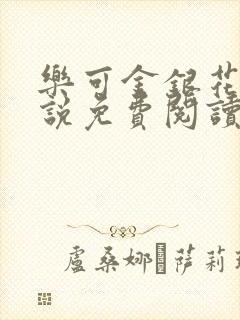 樂可金銀花
說免費閱讀
盧桑娜·薩莉